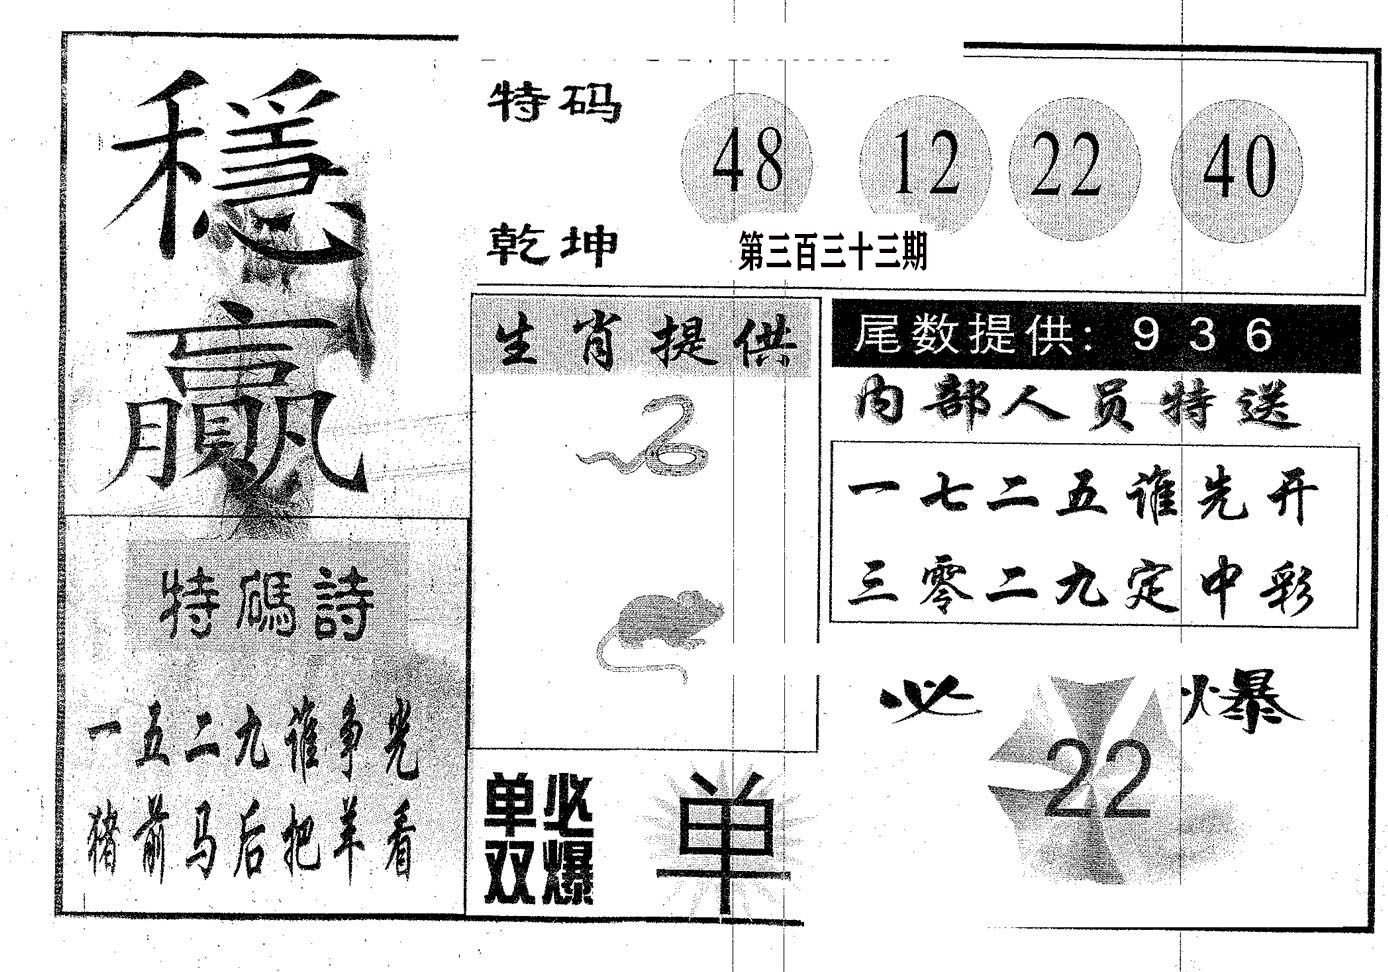 穩
贏
特码
48 12 22 40
乾坤
第三百三十三期
生肖提供
尾数提供: 9 3 6
内部人员特送
一七二五谁先开
三零二九定中彩
特碼詩
一五二九谁争光
猪前马后把羊看
必爆
22
单必
双爆
单